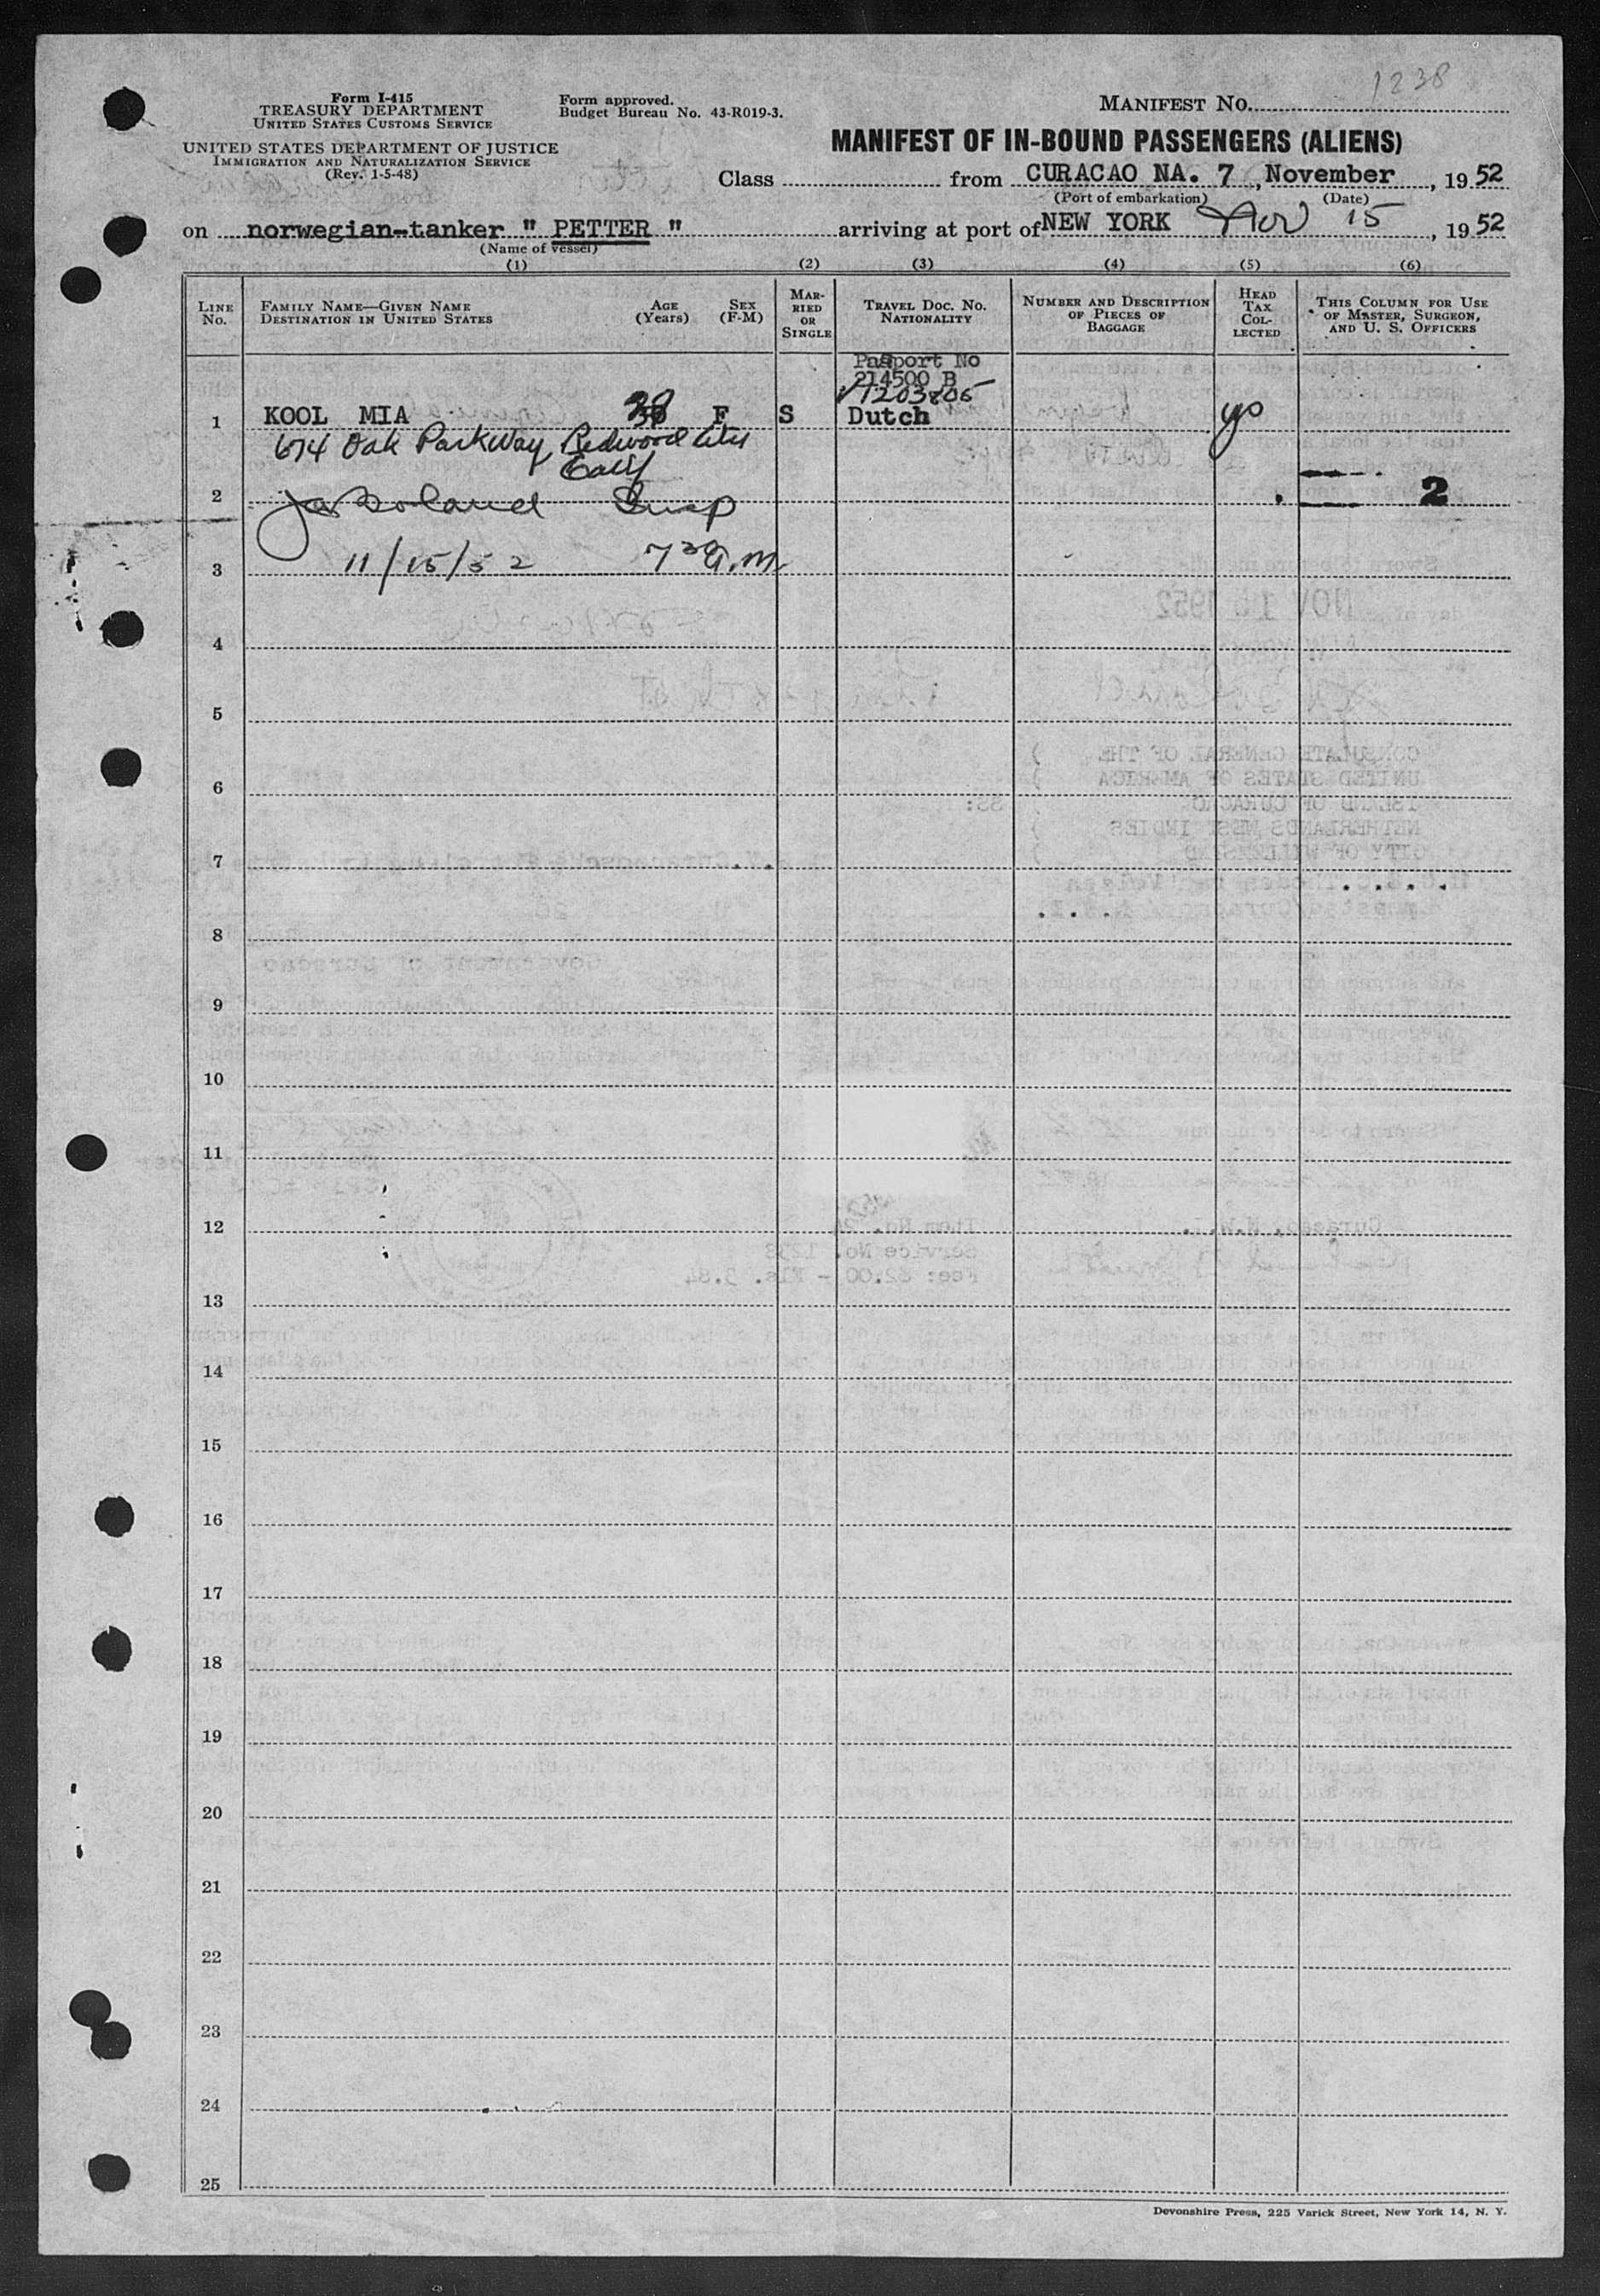 1238
Form I-415
TREASURY DEPARTMENT
UNITED STATES CUSTOMS SERVICE
UNITED STATES DEPARTMENT OF JUSTICE
IMMIGRATION AND NATURALIZATION SERVICE
(Rev. 1-5-48)
Form approved.
Budget Bureau No. 43-R019-3.
MANIFEST NO.
MANIFEST OF IN-BOUND PASSENGERS (ALIENS)
Class from CURACAO NA. 7 , November , 19 52
(Port of embarkation) (Date)
on norwegian-tanker " PETTER " arriving at port of NEW YORK Nov 15 , 19 52
(Name of vessel)
(1) (2) (3) (4) (5) (6)
LINE NO.
FAMILY NAME—GIVEN NAME
DESTINATION IN UNITED STATES
AGE (Years)
SEX (F-M)
MARRIED OR SINGLE
TRAVEL DOC. NO.
NATIONALITY
NUMBER AND DESCRIPTION OF PIECES OF BAGGAGE
HEAD TAX COLLECTED
THIS COLUMN FOR USE OF MASTER, SURGEON, AND U. S. OFFICERS
Pasport No
214500 B
1 KOOL MIA 38 F S Dutch
674 Oak Parkway, Redwood City
Calif
2 Insp 2
3 11/15/52 7 30 A.M.
4
5
6
7
8
9
10
11
12
13
14
15
16
17
18
19
20
21
22
23
24
25
Devonshire Press, 225 Varick Street, New York 14, N. Y.